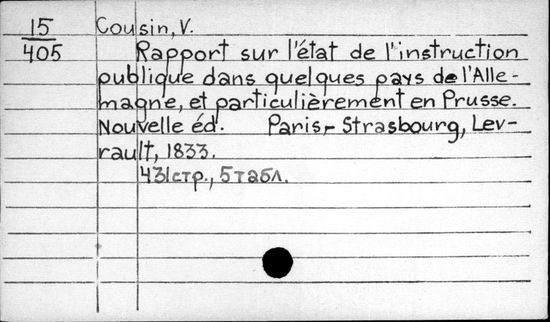 15 Cousin, V.
405 Rapport sur l'état de l'instruction
publique dans quelques pays de l'Alle-
magne, et particulièrement en Prusse.
Nouvelle éd. Paris,- Strasbourg, Lev-
rault, 1833.
431стр., 5 табл.